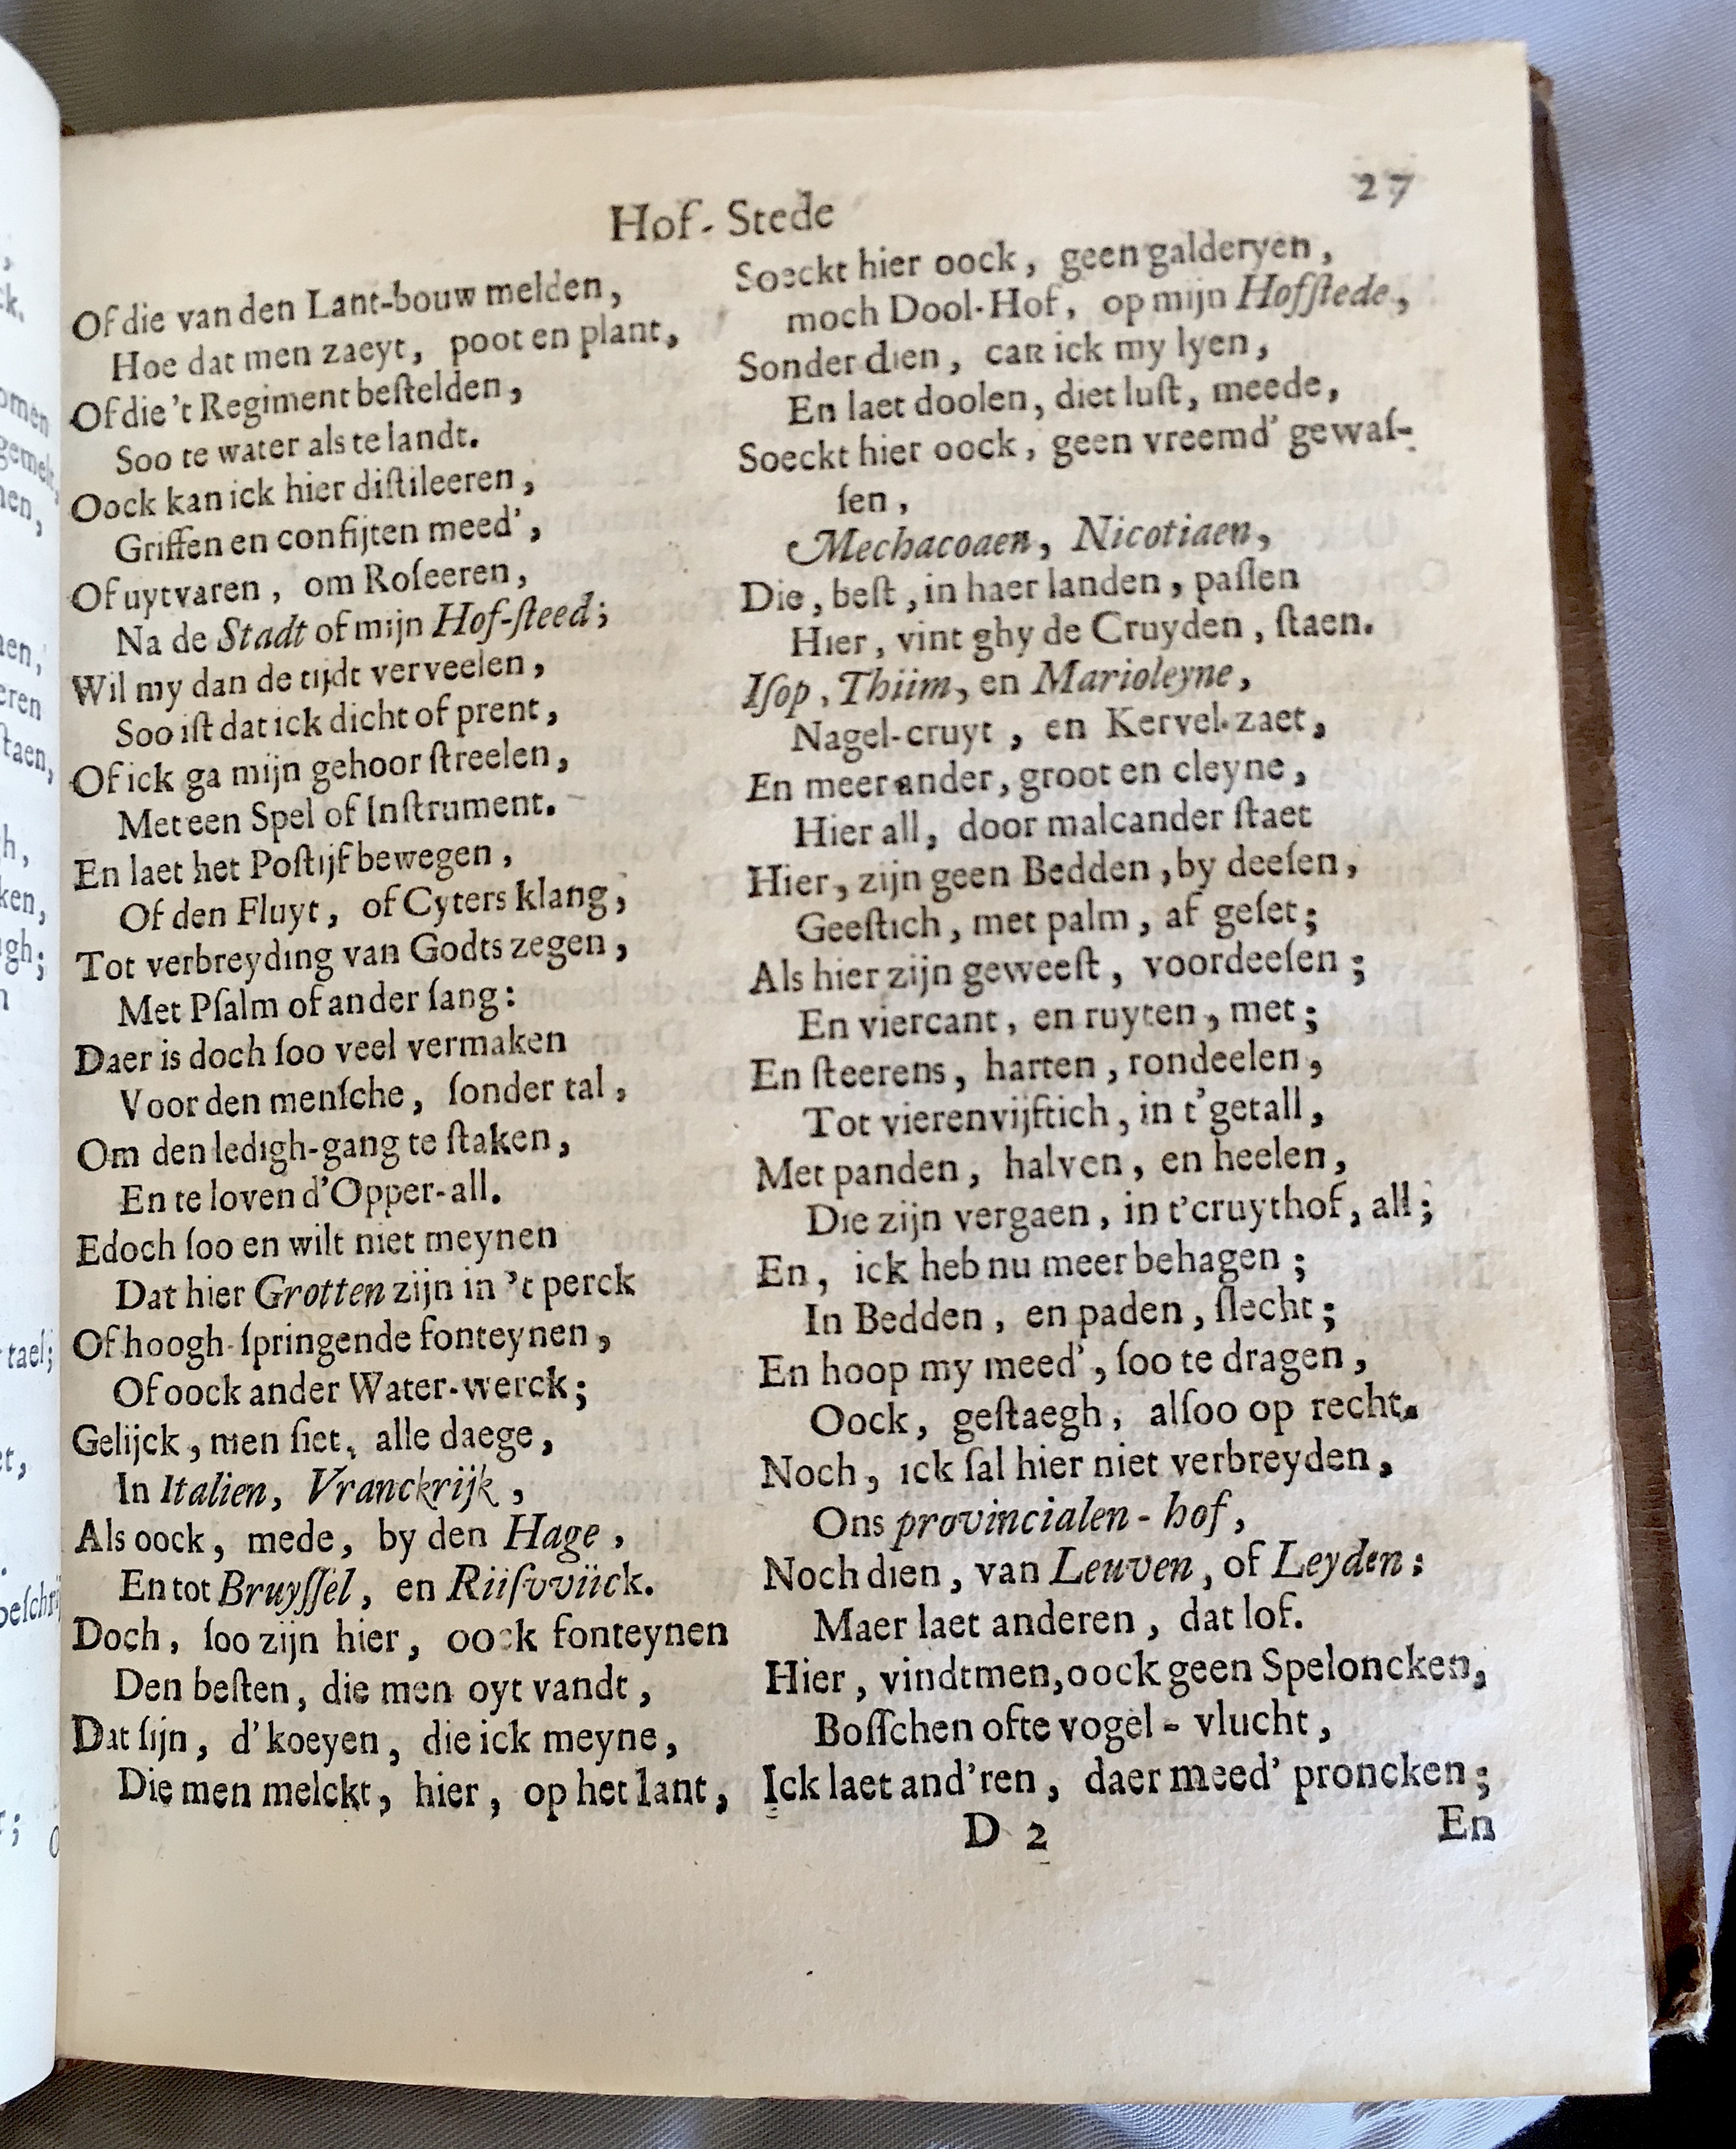 Hof-Stede
27
Of die van den Lant-bouw melden,
Hoe dat men zaeyt, poot en plant,
Of die 't Regiment beſtelden,
Soo te water als te landt.
Oock kan ick hier diſtileeren,
Griffen en confijten meed',
Of uytvaren, om Roſeeren,
Na de Stadt of mijn Hof-ſteed;
Wil my dan de tijdt verveelen,
Soo iſt dat ick dicht of prent,
Of ick ga mijn gehoor ſtreelen,
Met een Spel of Inſtrument.
En laet het Poſtijf bewegen,
Of den Fluyt, of Cyters klang,
Tot verbreyding van Godts zegen,
Met Pſalm of ander ſang:
Daer is doch ſoo veel vermaken
Voor den menſche, ſonder tal,
Om den ledigh-gang te ſtaken,
En te loven d'Opper-all.
Edoch ſoo en wilt niet meynen
Dat hier Grotten zijn in 't perck
Of hoogh-ſpringende fonteynen,
Of oock ander Water-werck;
Gelijck, men ſiet, alle daege,
In Italien, Vranckrijk,
Als oock, mede, by den Hage,
En tot Bruyſſel, en Riiſvviick.
Doch, ſoo zijn hier, oock fonteynen
Den beſten, die men oyt vandt,
Dat ſijn, d'koeyen, die ick meyne,
Die men melckt, hier, op het lant,
Soeckt hier oock, geen galderyen,
moch Dool-Hof, op mijn Hofſtede,
Sonder dien, can ick my lyen,
En laet doolen, diet luſt, meede,
Soeckt hier oock, geen vreemd' gewaſ-
ſen,
Mechacoaen, Nicotiaen,
Die, beſt, in haer landen, paſſen
Hier, vint ghy de Cruyden, ſtaen.
Iſop, Thiim, en Marioleyne,
Nagel-cruyt, en Kervel-zaet,
En meer ander, groot en cleyne,
Hier all, door malcander ſtaet
Hier, zijn geen Bedden, by deeſen,
Geeſtich, met palm, af geſet;
Als hier zijn geweeſt, voordeeſen;
En viercant, en ruyten, met;
En ſteerens, harten, rondeelen,
Tot vierenvijftich, in t'getall,
Met panden, halven, en heelen,
Die zijn vergaen, in t'cruythof, all;
En, ick heb nu meer behagen;
In Bedden, en paden, ſlecht;
En hoop my meed', ſoo te dragen,
Oock, geſtaegh, alſoo op recht.
Noch, ick ſal hier niet verbreyden,
Ons provincialen-hof,
Noch dien, van Leuven, of Leyden:
Maer laet anderen, dat lof.
Hier, vindtmen, oock geen Speloncken,
Boſſchen ofte vogel-vlucht,
Ick laet and'ren, daer meed' proncken;
D 2
En